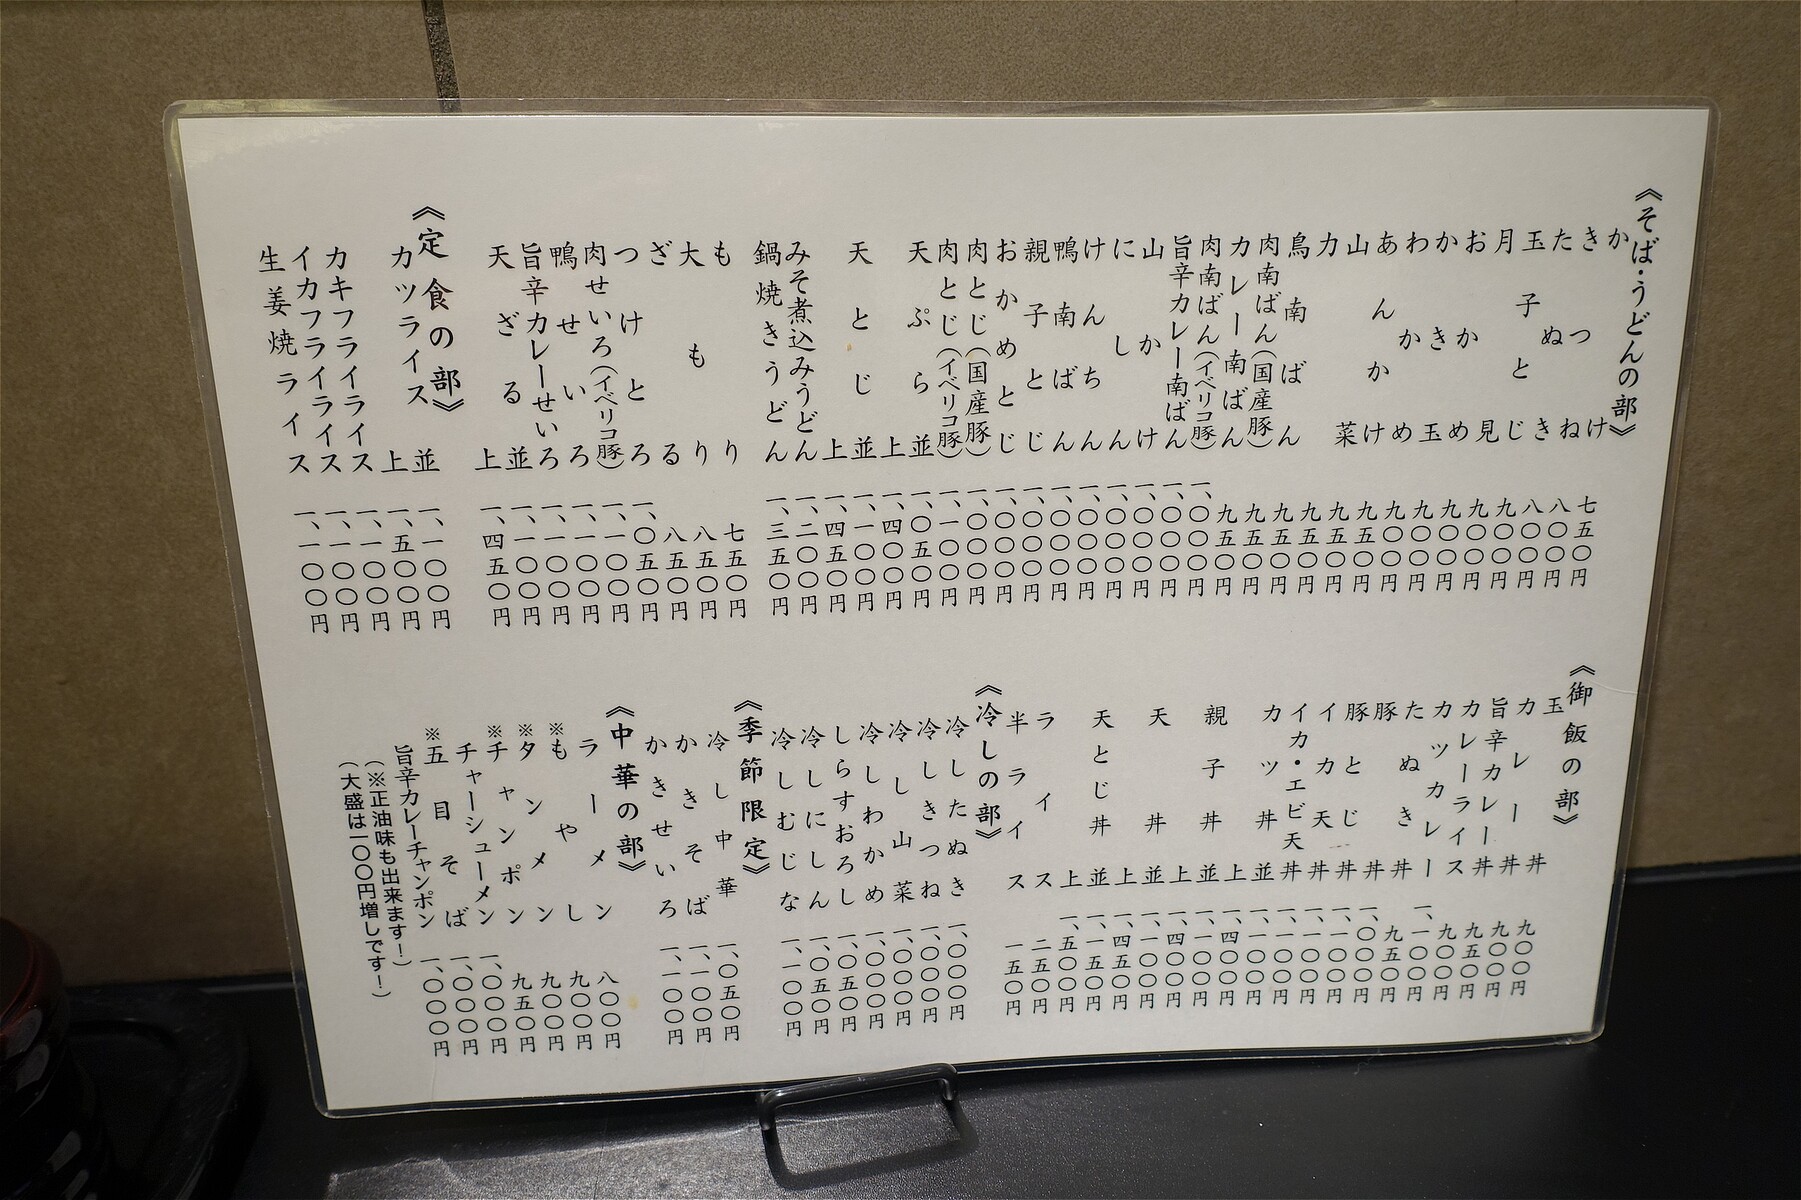 《そば・うどんの部》
かけ 七五〇円
きつね 八〇〇円
たぬき 八〇〇円
玉子とじ 九〇〇円
月見 九〇〇円
おかめ 九〇〇円
かき玉 九〇〇円
わかめ 九〇〇円
あんかけ 九五〇円
山菜 九五〇円
力 九五〇円
鳥南ばん 九五〇円
肉南ばん(国産豚) 九五〇円
カレー南ばん 九五〇円
肉南ばん(イベリコ豚) 一、〇〇〇円
旨辛カレー南ばん 一、〇〇〇円
山かけ 一、〇〇〇円
にしん 一、〇〇〇円
けんちん 一、〇〇〇円
鴨南ばん 一、〇〇〇円
親子とじ 一、〇〇〇円
おかめとじ 一、〇〇〇円
肉とじ(国産豚) 一、〇〇〇円
肉とじ(イベリコ豚) 一、一〇〇円
天ぷら 並 一、〇五〇円
上 一、四〇〇円
天とじ 並 一、一〇〇円
上 一、四五〇円
みそ煮込みうどん 一、二〇〇円
鍋焼きうどん 一、三五〇円
もり 七五〇円
大もり 八五〇円
ざる 八五〇円
つけとろ 一、〇五〇円
肉せいろ(イベリコ豚) 一、一〇〇円
鴨せいろ 一、一〇〇円
旨辛カレーせいろ 一、一〇〇円
天ざる 並 一、一〇〇円
上 一、四五〇円
《定食の部》
カツライス 並 一、一〇〇円
上 一、五〇〇円
カキフライライス 一、一〇〇円
イカフライライス 一、一〇〇円
生姜焼ライス 一、一〇〇円
《御飯の部》
玉子丼 九〇〇円
カレー丼 九〇〇円
旨辛カレー丼 九五〇円
カレーライス 九〇〇円
カツカレー 一、一〇〇円
たぬき丼 九五〇円
豚丼 一、〇〇〇円
豚とじ丼 一、一〇〇円
イカ天丼 一、一〇〇円
イカ・エビ天丼 一、一〇〇円
カツ丼 並 一、一〇〇円
上 一、四〇〇円
親子丼 並 一、一〇〇円
上 一、四〇〇円
天丼 並 一、一〇〇円
上 一、四五〇円
天とじ丼 並 一、一五〇円
上 一、五〇〇円
ライス 二五〇円
半ライス 一五〇円
《冷しの部》
冷したぬき 一、〇〇〇円
冷しきつね 一、〇〇〇円
冷し山菜 一、〇〇〇円
冷しわかめ 一、〇〇〇円
しらすおろし 一、〇五〇円
冷しにしん 一、〇五〇円
冷しむじな 一、一〇〇円
《季節限定》
冷し中華 一、〇五〇円
かきそば 一、一〇〇円
かきせいろ 一、一〇〇円
《中華の部》
ラーメン 八〇〇円
※もやし 九〇〇円
※タンメン 九〇〇円
※チャンポン 九五〇円
チャーシューメン 一、〇〇〇円
※五目そば 一、〇〇〇円
旨辛カレーチャンポン 一、〇〇〇円
(※正油味も出来ます!)
(大盛は一〇〇円増しです!)